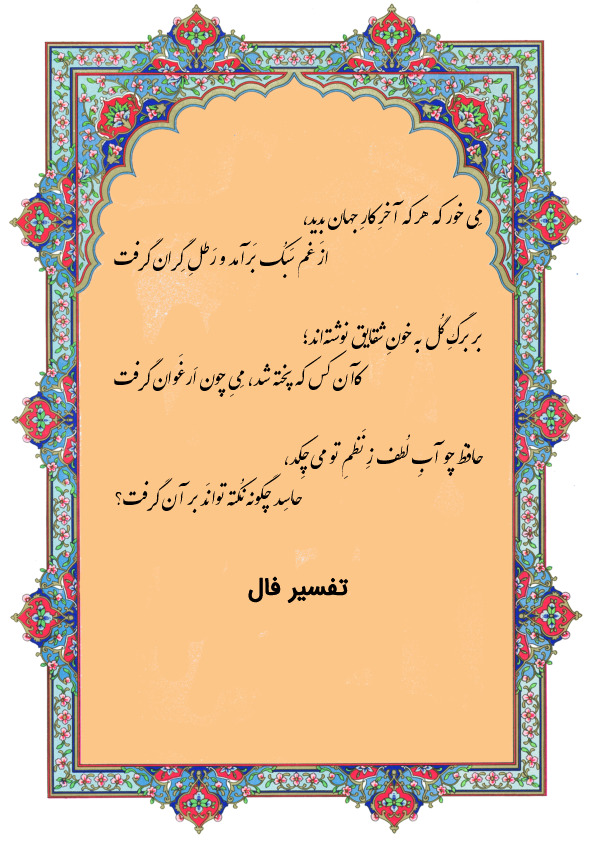 مِی خور که هر که آخرِ کارِ جهان بدید،
از غم سَبُک بَرآمد و رَطْلِ گِران گرفت
بر برگِ گُل به خونِ شقایق نوشته‌اند؛
کآن کس که پخته شد، مِیِ چون اَرغَوان گرفت
حافظ چو آبِ لُطف زِ نَظمِ تو می‌چِکد،
حاسِد چگونه نکُته توانَد بر آن گرفت؟
تفسیر فال